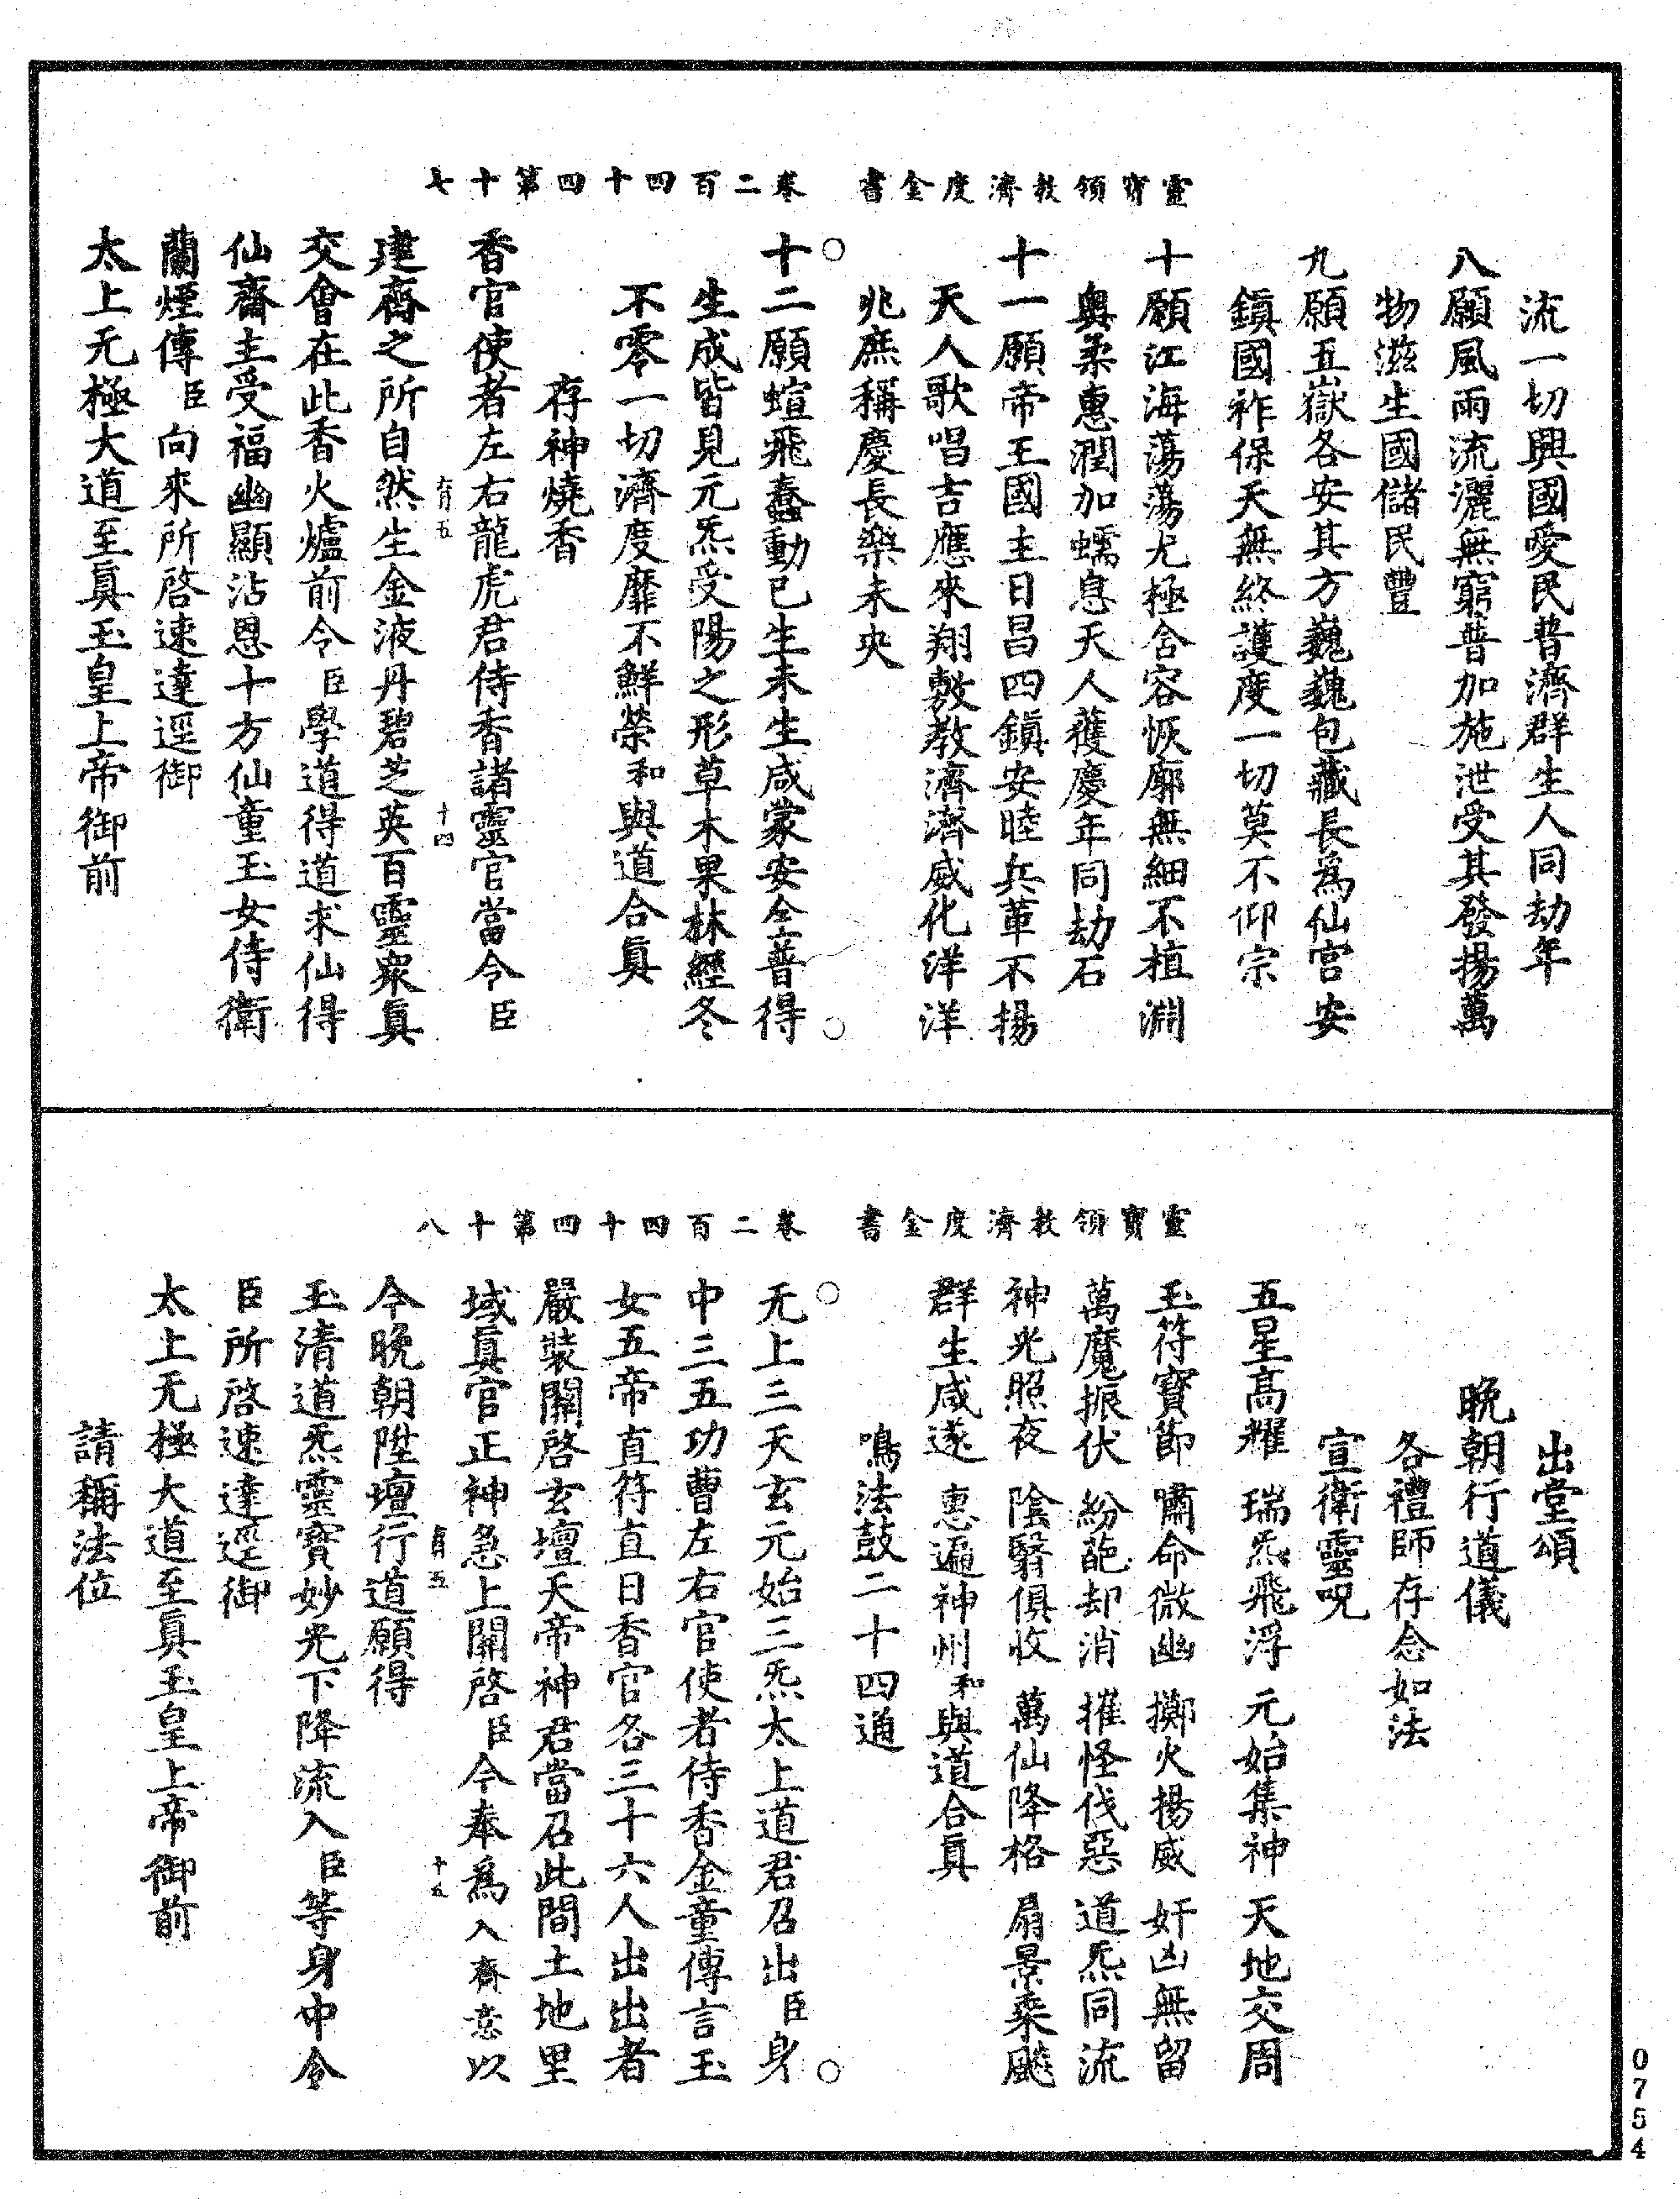 靈寶領教濟度金書 卷二百四十四第十七
流一切興國愛民普濟群生人同劫年
八願風雨流灑無窮普加施泄受其發揚萬
物滋生國儲民豐
九願五嶽各安其方巍巍包藏長爲仙宮安
鎮國祚保天無終護度一切莫不仰宗
十願江海蕩蕩尤極含容恢廓無細不植淵
奧柔惠潤加蠕息天人獲慶年同劫石
十一願帝王國主日昌四鎮安睦兵革不揚
天人歌唱吉應來翔敷教濟濟威化洋洋
兆庶稱慶長樂未央
○十二願蝖飛蠢動已生未生咸蒙安全普得○
生成皆見元炁受陽之形草木果林經冬
不零一切濟度靡不鮮榮和與道合眞
存神燒香
香官使者左右龍虎君侍香諸靈官當令臣
建齋之所自然生金液丹碧芝英百靈衆眞
交會在此香火爐前令臣學道得道求仙得
仙齋主受福幽顯沾恩十方仙童玉女侍衛
蘭煙傳臣向來所啓速達逕御
太上无極大道至眞玉皇上帝御前
靈寶領教濟度金書 卷二百四十四第十八
出堂頌
晚朝行道儀
各禮師存念如法
宣衛靈呪
五星高耀 瑞炁飛浮 元始集神 天地交周
玉符寶節 嘯命微幽 擲火揚威 奸凶無留
萬魔振伏 紛葩却消 摧怪伐惡 道炁同流
神光照夜 陰翳俱收 萬仙降格 扇景乘飈
群生咸遂 惠遍神州和與道合眞
鳴法鼓二十四通
○无上三天玄元始三炁太上道君召出臣身○
中三五功曹左右官使者侍香金童傳言玉
女五帝直符直日香官各三十六人出出者
嚴裝關啓玄壇天帝神君當召此間土地里
域眞官正神急上關啓臣今奉爲入齋意以
今晚朝陞壇行道願得
玉清道炁靈寶妙光下降流入臣等身中令
臣所啓速達逕御
太上无極大道至眞玉皇上帝御前
請稱法位
0754